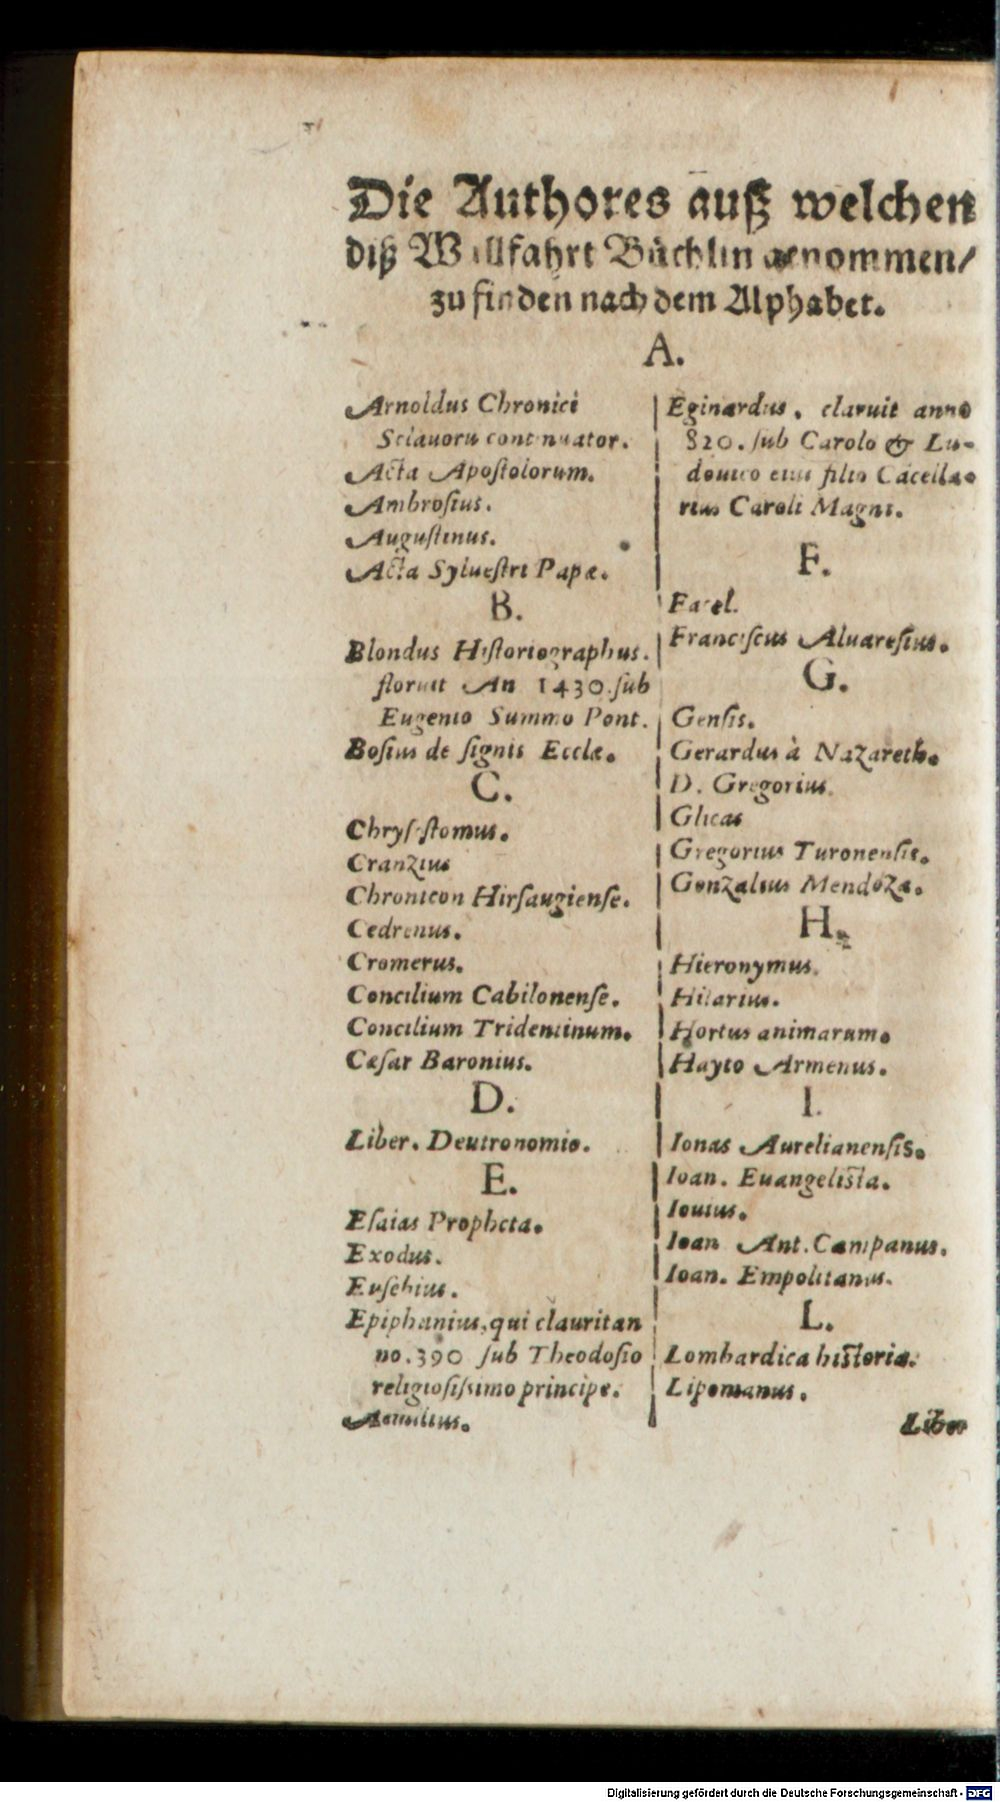 Die Authores auß welchen
diß Wallfahrt Büchlin genommen/
zu finden nach dem Alphabet.
A.
Arnoldus Chronici
Sclauorū continuator.
Acta Apoſtolorum.
Ambroſius.
Auguſtinus.
Acta Sylueſtri Papæ.
B.
Blondus Hiſtoriographus.
floruit An 1430. ſub
Eugenio Summo Pont.
Boſius de ſignis Eccłæ.
C.
Chryſoſtomus.
Cranzius
Chronicon Hirſaugienſe.
Cedrenus.
Cromerus.
Concilium Cabilonenſe.
Concilium Tridentinum.
Cæſar Baronius.
D.
Liber. Deutronomio.
E.
Eſaias Propheta.
Exodus.
Euſebius.
Epiphanius, qui clauritan
no. 390 ſub Theodoſio
religioſiſsimo principe.
Aemilius.
Eginardus. claruit anno
820. ſub Carolo & Lu-
douico eius filio Cācella-
rius Caroli Magni.
F.
Facel.
Franciſcus Aluareſius.
G.
Genſis.
Gerardus à Nazareth.
D. Gregorius.
Glicas
Gregorius Turonenſis.
Gonzalius Mendoza.
H.
Hieronymus.
Hilarius.
Hortus animarum.
Hayto Armenus.
I.
Ionas Aurelianenſis.
Ioan. Euangelista.
Iouius.
Ioan Ant. Campanus.
Ioan. Empolitanus.
L.
Lombardica historia.
Lipomanus.
Liber
Digitalisierung gefördert durch die Deutsche Forschungsgemeinschaft - DFG